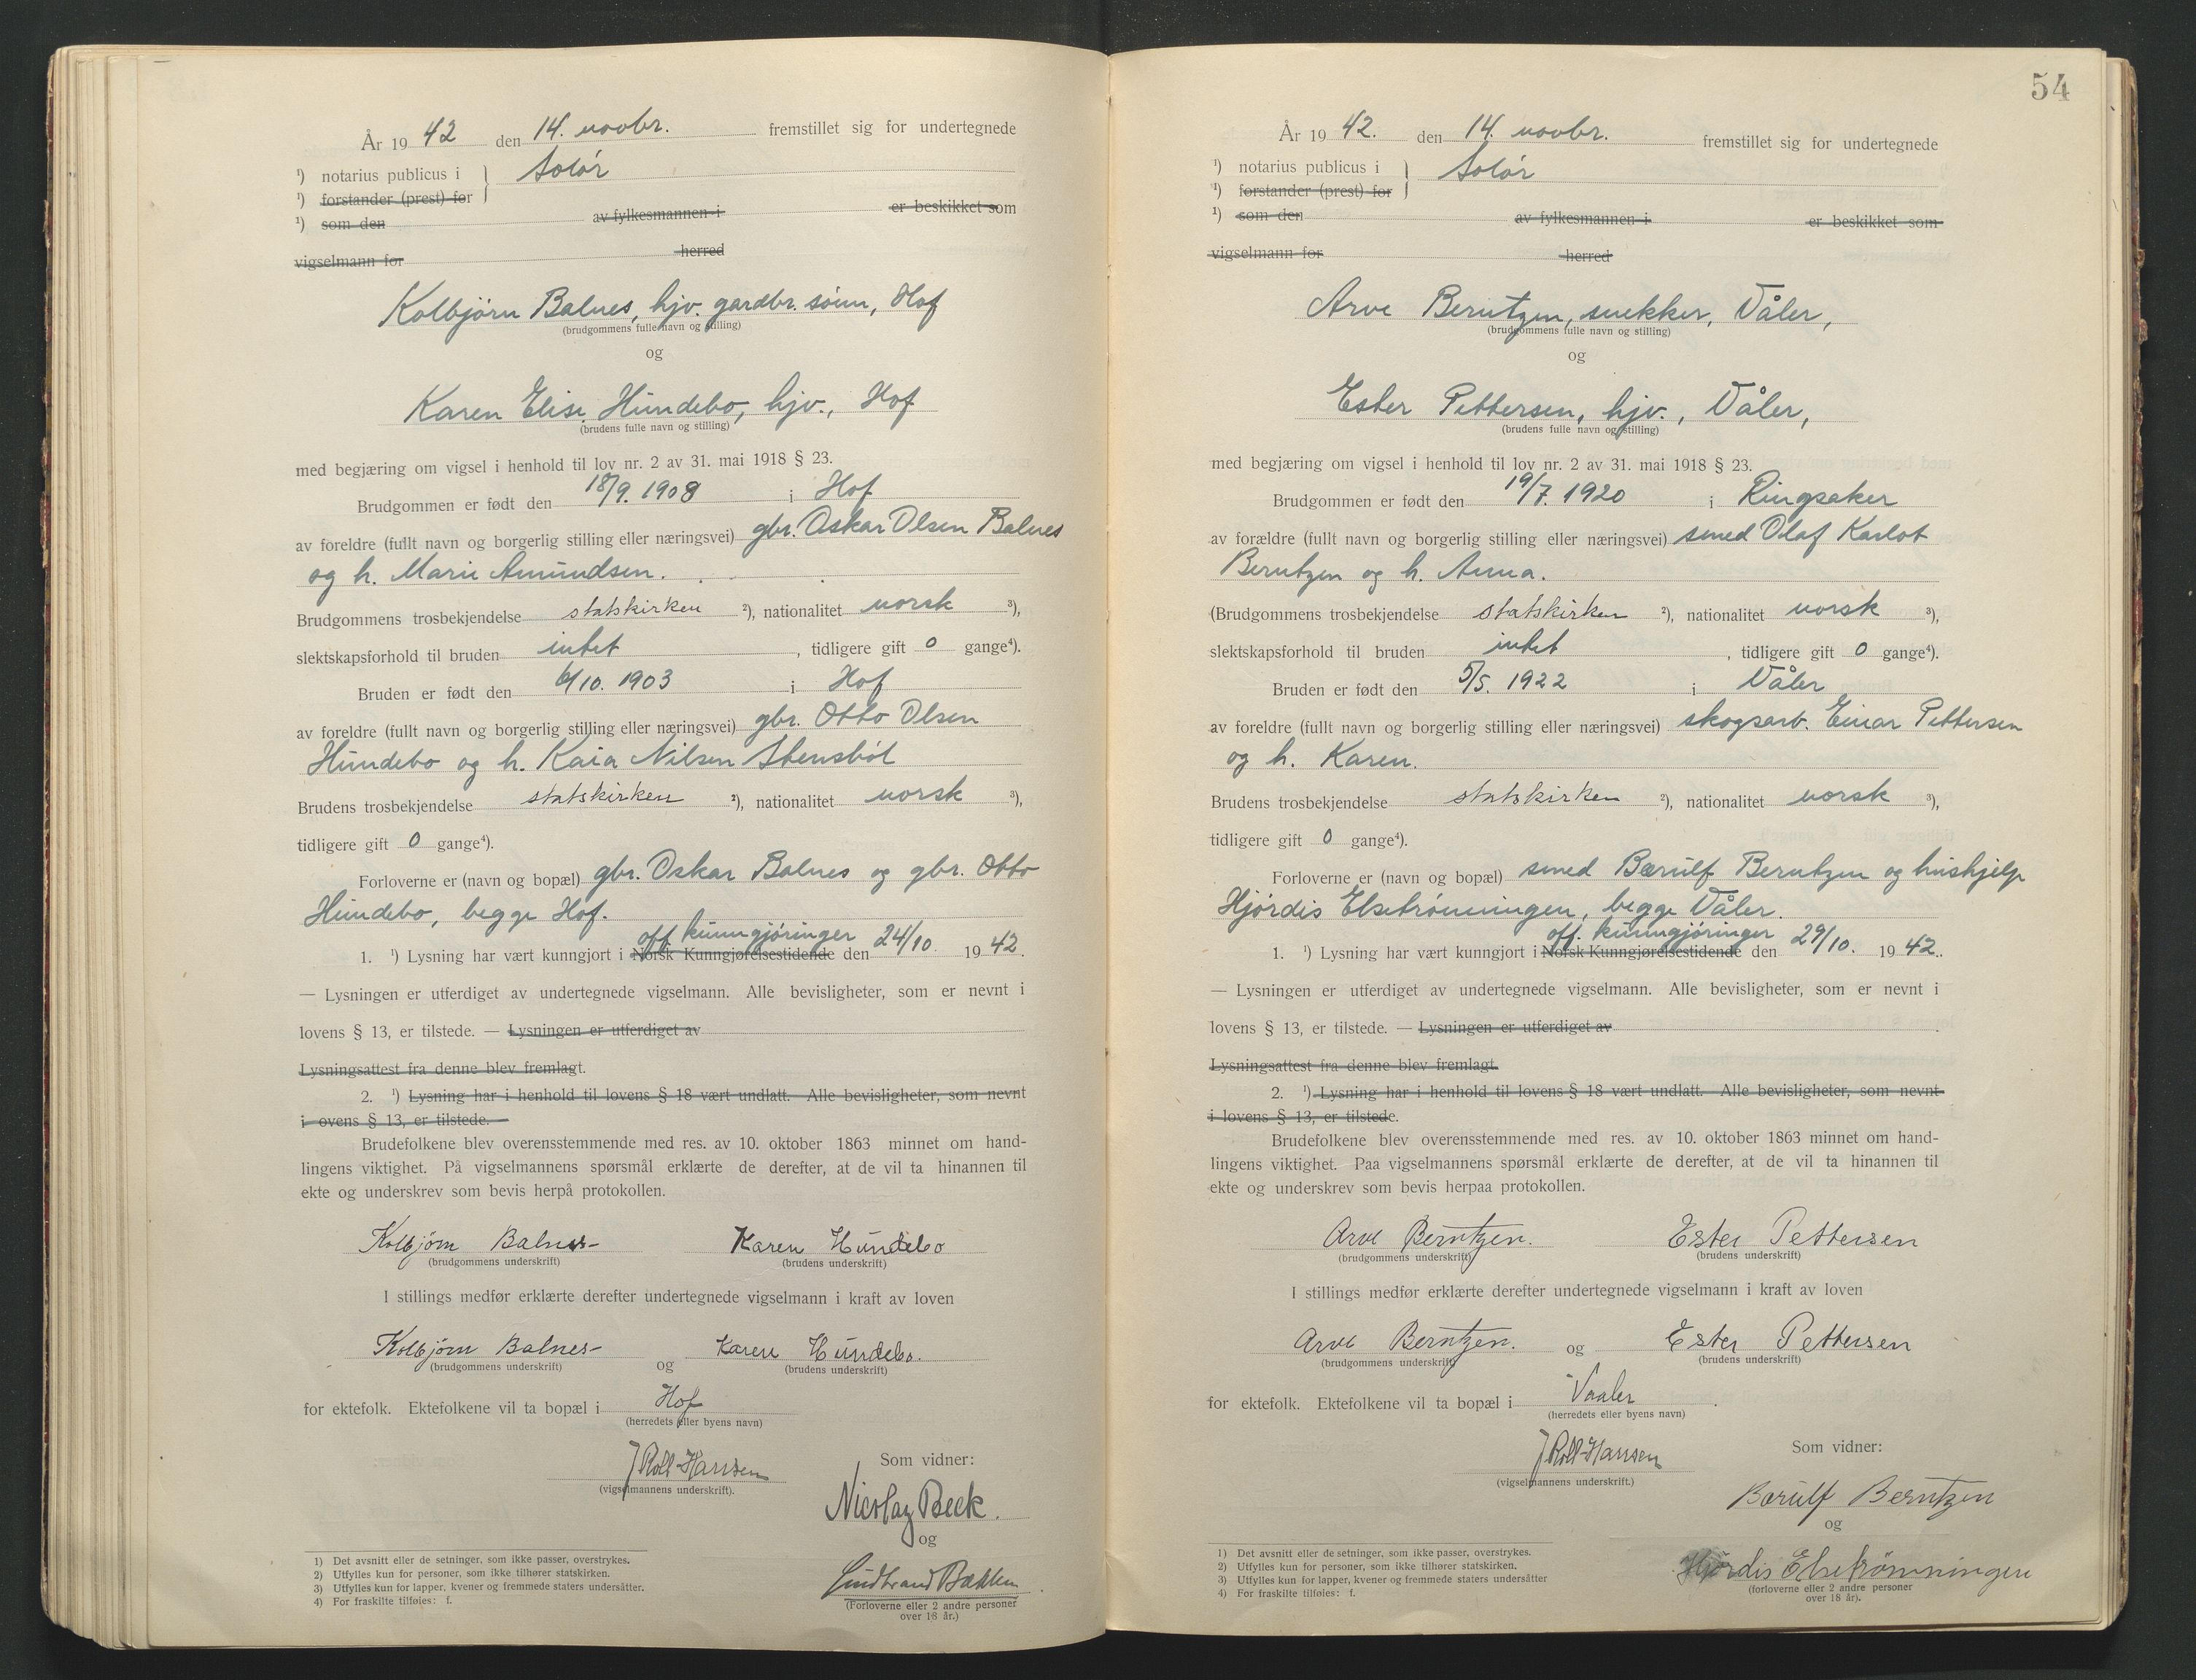 År 1942 den 14. novbr. fremstillet sig for undertegnede
¹) notarius publicus i } Solør
¹) forstander (prest) for
¹) som den av fylkesmannen i er beskikket som
vigselmann for herred
Kolbjørn Balnes, hjv. gardbr. sønn, Hof
(brudgommens fulle navn og stilling)
og
Karen Elise Hundebo, hjv., Hof
(brudens fulle navn og stilling)
med begjæring om vigsel i henhold til lov nr. 2 av 31. mai 1918 § 23.
Brudgommen er født den 18/9. 1908 i Hof
av foreldre (fullt navn og borgerlig stilling eller næringsvei) gbr. Oskar Olsen Balnes
og h. Marie Amundsen.
Brudgommens trosbekjendelse statskirken ²), nationalitet norsk ³),
slektskapsforhold til bruden intet, tidligere gift 0 gange⁴).
Bruden er født den 6/10. 1903 i Hof
av foreldre (fullt navn og borgerlig stilling eller næringsvei) gbr. Otto Olsen
Hundebo og h. Kaia Nilsen Stensbøl
Brudens trosbekjendelse statskirken ²), nationalitet norsk ³),
tidligere gift 0 gange⁴).
Forloverne er (navn og bopæl) gbr. Oskar Balnes og gbr. Otto
Hundebo, begge Hof.
off. kunngjøringer
1. ¹) Lysning har vært kunngjort i Norsk Kunngjørelsestidende den 24/10. 1942.
— Lysningen er utferdiget av undertegnede vigselmann. Alle bevisligheter, som er nevnt i
lovens § 13, er tilstede. — Lysningen er utferdiget av
Lysningsattest fra denne blev fremlagt.
2. ¹) Lysning har i henhold til lovens § 18 vært undlatt. Alle bevisligheter, som nevnt
i ovens § 13, er tilstede. —
Brudefolkene blev overensstemmende med res. av 10. oktober 1863 minnet om hand-
lingens viktighet. På vigselmannens spørsmål erklærte de derefter, at de vil ta hinannen til
ekte og underskrev som bevis herpå protokollen.
Kolbjørn Balnes Karen Hundebo
(brudgommens underskrift) (brudens underskrift)
I stillings medfør erklærte derefter undertegnede vigselmann i kraft av loven
Kolbjørn Balnes og Karen Hundebo.
(brudgommens underskrift) (brudens underskrift)
for ektefolk. Ektefolkene vil ta bopæl i Hof
(herredets eller byens navn)
J Roll-Hansen
(vigselmannens underskrift).
Som vidner:
Nicolay Beck.
og
Gudbrand Bakken
(Forloverne eller 2 andre personer
over 18 år.)
1) Det avsnitt eller de setninger, som ikke passer, overstrykes.
2) Utfylles kun for personer, som ikke tilhører statskirken.
3) Utfylles kun for lapper, kvener og fremmede staters undersåtter.
4) For fraskilte tilføies: f.
54
År 1942. den 14. novbr. fremstillet sig for undertegnede
¹) notarius publicus i } Solør
¹) forstander (prest) for
¹) som den av fylkesmannen i er beskikket som
vigselmann for herred
Arve Berntzen, snekker, Våler,
(brudgommens fulle navn og stilling)
og
Ester Pettersen, hjv., Våler,
(brudens fulle navn og stilling)
med begjæring om vigsel i henhold til lov nr. 2 av 31. mai 1918 § 23.
Brudgommen er født den 19/7. 1920 i Ringsaker
av forældre (fullt navn og borgerlig stilling eller næringsvei) smed Olaf Karlot
Berntzen og h. Anna.
(Brudgommens trosbekjendelse statskirken ²), nationalitet norsk ³),
slektskapsforhold til bruden intet, tidligere gift 0 gange⁴).
Bruden er født den 5/5. 1922 i Våler
av foreldre (fullt navn og borgerlig stilling eller næringsvei) skogsarb. Einar Pettersen
og h. Karen.
Brudens trosbekjendelse statskirken ²), nationalitet norsk ³),
tidligere gift 0 gange⁴).
Forloverne er (navn og bopæl) smed Bærulf Berntzen og hushjelp
Hjørdis Elsetrønningen, begge Våler.
off. kunngjøringer
1. ¹) Lysning har vært kunngjort i Norsk Kunngjørelsestidende den 29/10. 1942.
— Lysningen er utferdiget av undertegnede vigselmann. Alle bevisligheter, som er nevnt i
lovens § 13, er tilstede. — Lysningen er utferdiget av
Lysningsattest fra denne blev fremlagt.
2. ¹) Lysning har i henhold til lovens § 18 vært undlatt. Alle bevisligheter, som nevnt
i lovens § 13, er tilstede.
Brudefolkene blev overensstemmende med res. av 10. oktober 1863 minnet om hand-
lingens viktighet. Paa vigselmannens spørsmål erklærte de derefter, at de vil ta hinannen til
ekte og underskrev som bevis herpaa protokollen.
Arve Berntzen. Ester Pettersen
(brudgommens underskrift) (brudens underskrift)
I stillings medfør erklærte derefter undertegnede vigselmann i kraft av loven
Arve Berntzen. og Ester Pettersen
(brudgommens underskrift) (brudens underskrift)
for ektefolk. Ektefolkene vil ta bopæl i Vaaler.
(herredets eller byens navn)
J Roll-Hansen
(vigselmannens underskrift.)
Som vidner:
Bærulf Berntzen
og
Hjørdis Elsetrønningen
(forloverne eller 2 andre personer
over 18 år).
1) Det avsnitt eller de setninger, som ikke passer, overstrykes.
2) Utfylles kun for personer, som ikke tilhører statskirken.
3) Utfylles kun for lapper, kvener og fremmede staters undersåtter
4) For fraskilte tilføies: f.